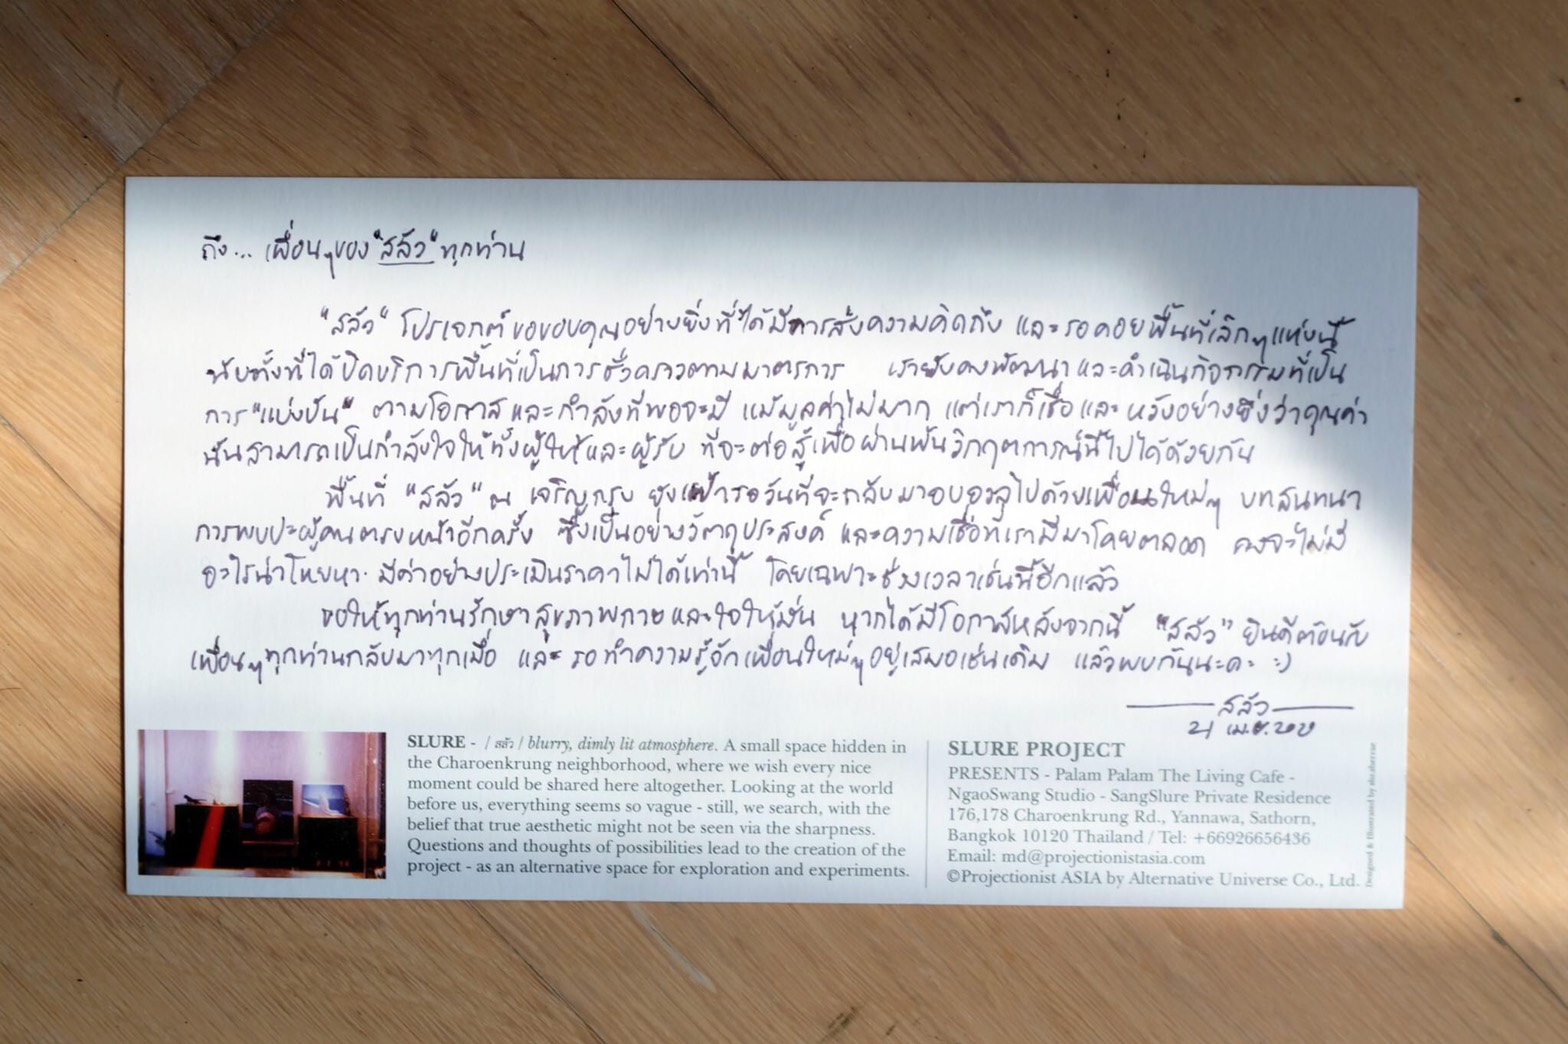 ถึง... เพื่อนๆของ"สลัว"ทุกท่าน
"สลัว" โปรเจกต์ ขอขอบคุณอย่างยิ่งที่ได้มีการส่งความคิดถึง และรอคอยพื้นที่เล็กๆแห่งนี้
นับตั้งที่ได้ปิดบริการพื้นที่เป็นการชั่วคราวตามมาตรการ เรายังคงพัฒนาและดำเนินกิจกรรมที่เป็น
การ"แบ่งปัน" ตามโอกาสและกำลังที่พอจะมี แม้มูลค่าไม่มาก แต่เราก็เชื่อและ หวังอย่างยิ่งว่าคุณค่า
นั้นสามารถเป็นกำลังใจให้ทั้งผู้ให้และผู้รับ ที่จะต่อสู้เพื่อผ่านพ้นวิกฤตการณ์นี้ไปได้ด้วยกัน
พื้นที่ "สลัว" ณ เจริญกรุง ยังเฝ้ารอวันที่จะกลับมาอบอวลไปด้วยเพื่อนใหม่ๆ บทสนทนา
การพบปะผู้คนตรงหน้าอีกครั้ง ซึ่งเป็นอย่างวัตถุประสงค์ และความเชื่อที่เรามีมาโดยตลอด คงจะไม่มี
อะไรน่าโหยหา มีค่าอย่างประเมินราคาไม่ได้เท่านี้ โดยเฉพาะช่วงเวลาเช่นนี้อีกแล้ว
ขอให้ทุกท่านรักษาสุขภาพกายและใจให้มั่น หากได้มีโอกาสหลังจากนี้ "สลัว" ยินดีต้อนรับ
เพื่อนๆทุกท่านกลับมาทุกเมื่อ และ รอทำความรู้จักเพื่อนใหม่ๆอยู่เสมอเช่นเดิม แล้วพบกันนะคะ :)
สลัว
21 เม.ย. 2020
SLURE - / สลัว / blurry, dimly lit atmosphere. A small space hidden in
the Charoenkrung neighborhood, where we wish every nice
moment could be shared here altogether. Looking at the world
before us, everything seems so vague - still, we search, with the
belief that true aesthetic might not be seen via the sharpness.
Questions and thoughts of possibilities lead to the creation of the
project - as an alternative space for exploration and experiments.
SLURE PROJECT
PRESENTS - Palam Palam The Living Cafe -
NgaoSwang Studio - SangSlure Private Residence
176,178 Charoenkrung Rd., Yannawa, Sathorn,
Bangkok 10120 Thailand / Tel: +66926656436
Email: md@projectionistasia.com
©Projectionist ASIA by Alternative Universe Co., Ltd.
Designed & Illustrated by